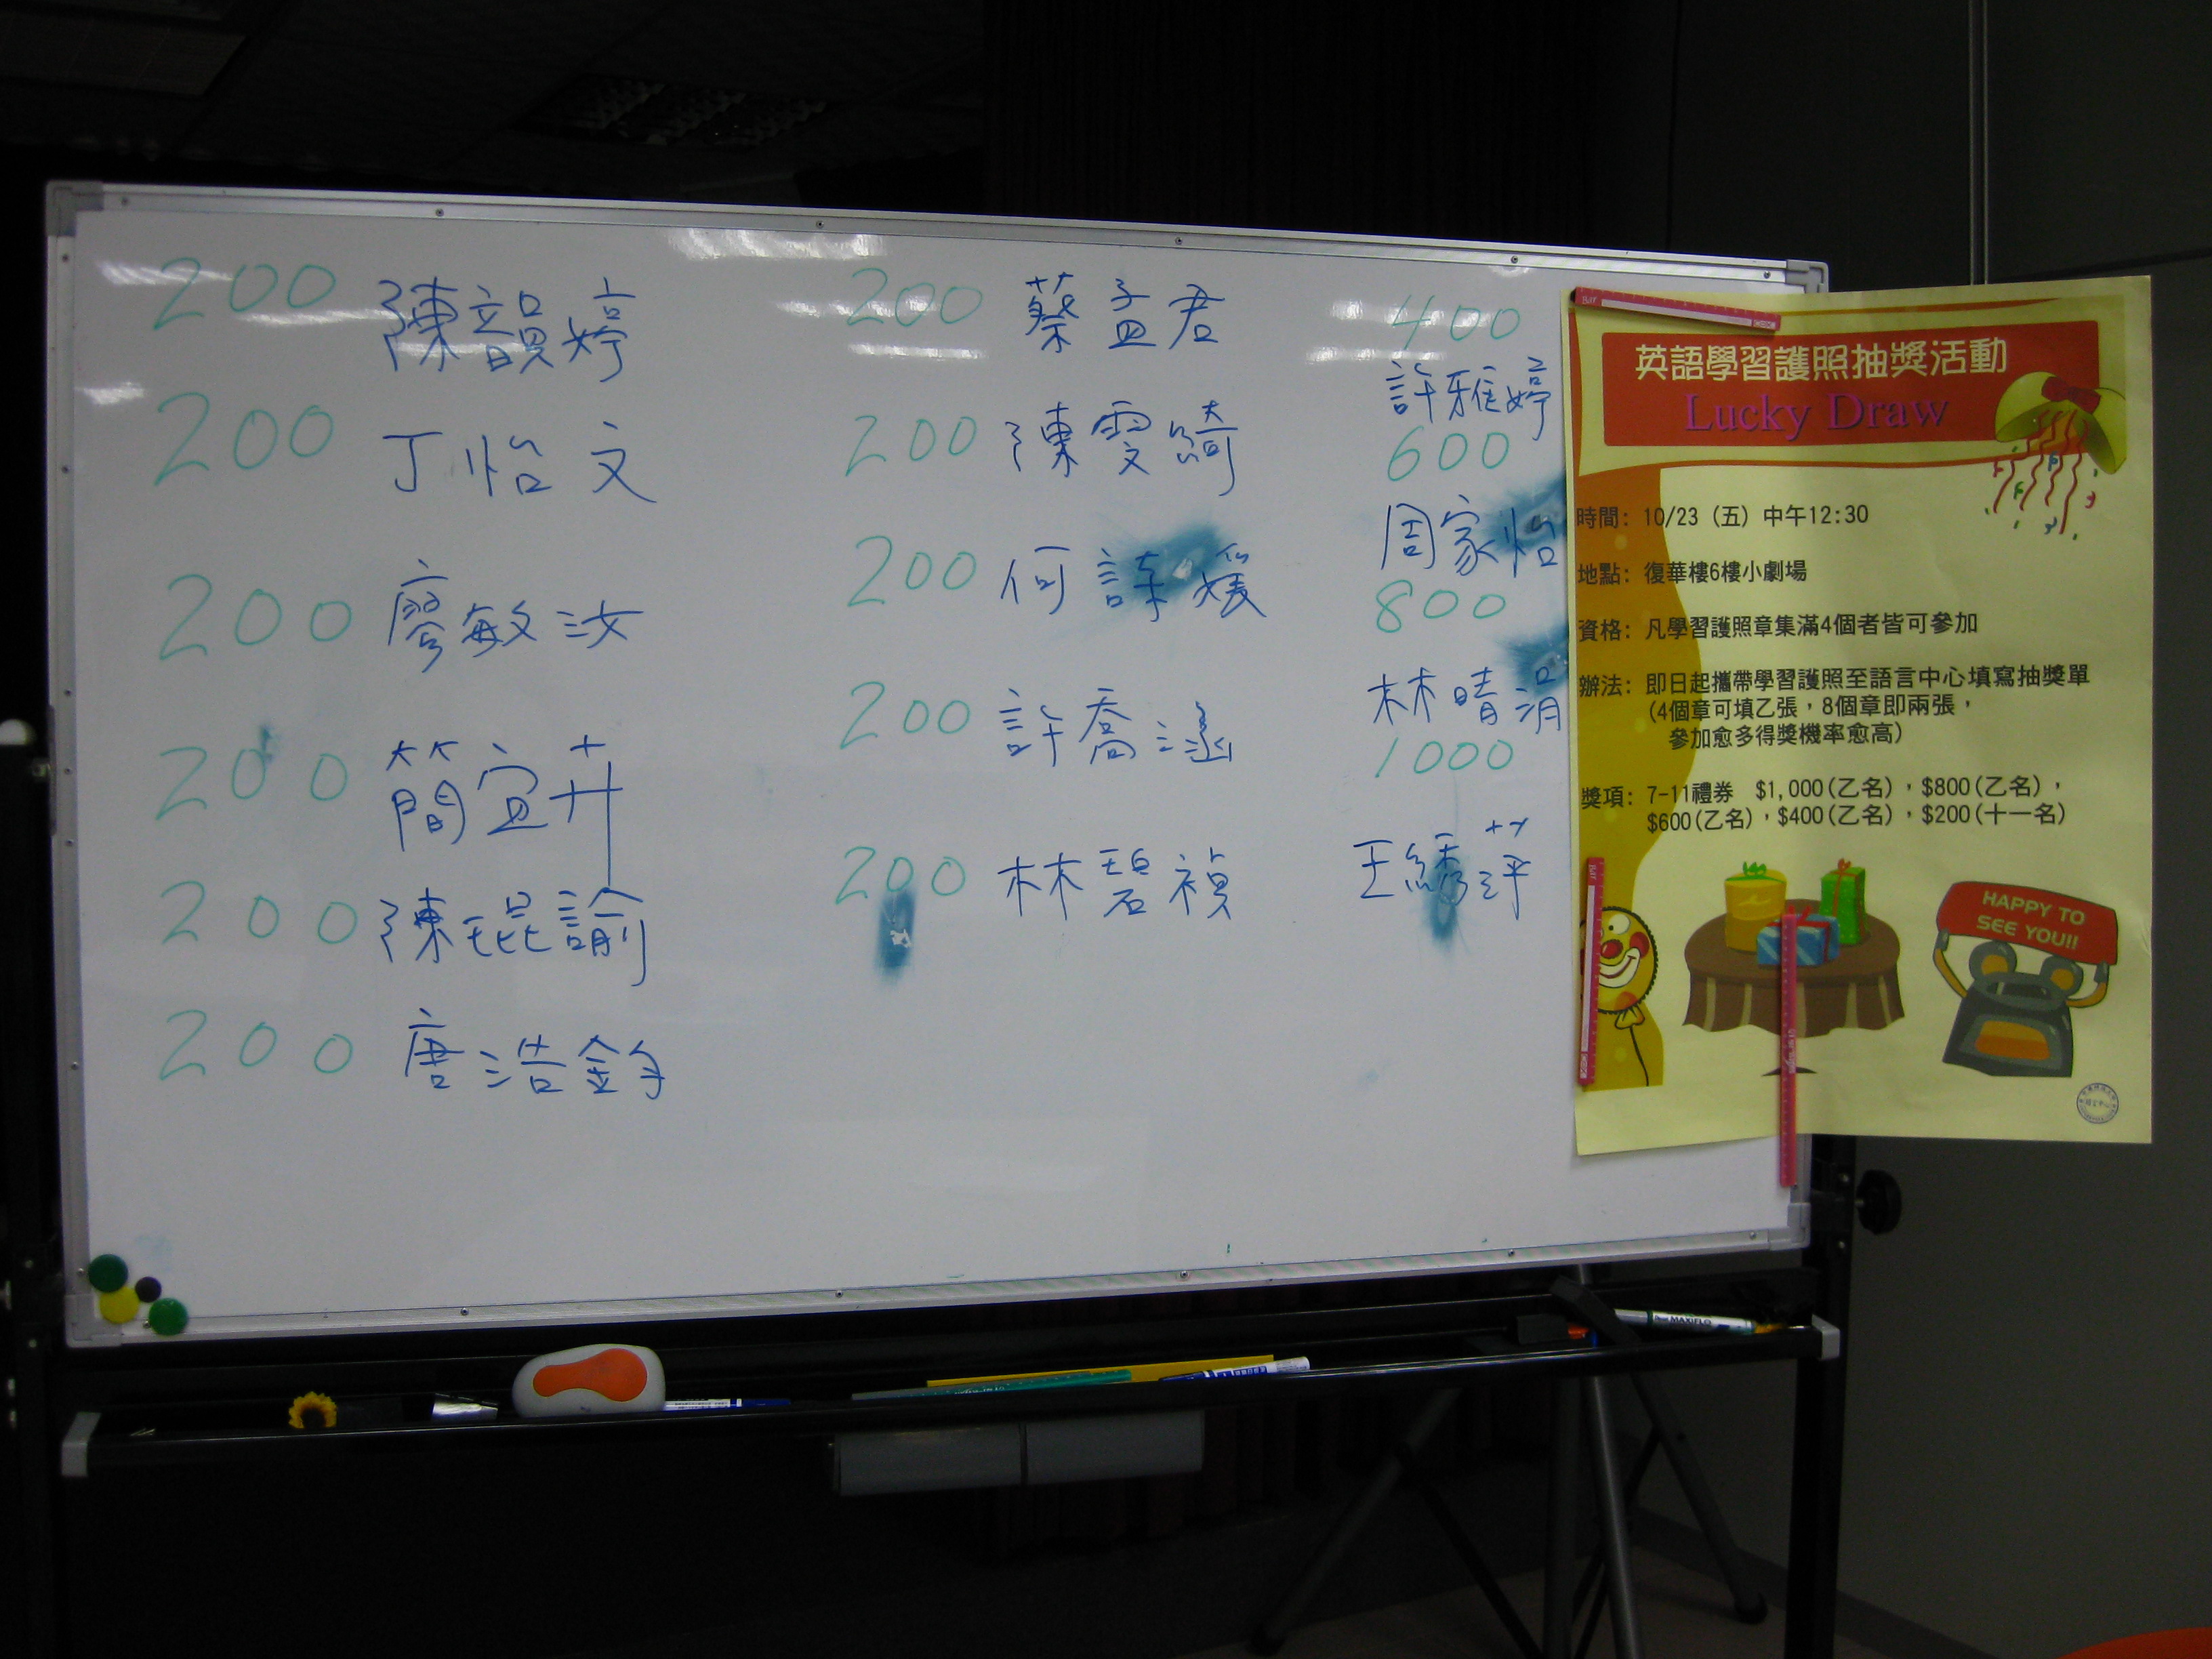 200 陳韻婷
200 丁怡文
200 廖敏汝
200 簡宜卉
200 陳琨諭
200 唐浩鈞
200 蔡孟君
200 陳雯綺
200 何詩媛
200 許喬
200 林碧禎
400
許雅婷
600
周家怡
800
林晴涓
1000
王繡萍
英語學習護照抽獎活動
Lucky Draw
時間: 10/23 (五) 中午12:30
地點: 復華樓6樓小劇場
資格: 凡學習護照章集滿4個者皆可參加
辦法: 即日起攜帶學習護照至語言中心填寫抽獎單
(4個章可填乙張，8個章即兩張，
參加愈多得獎機率愈高)
獎項: 7-11禮券 $1,000(乙名)，$800(乙名)，
$600(乙名)，$400(乙名)，$200(十一名)
HAPPY TO
SEE YOU!!
MAXIFLO